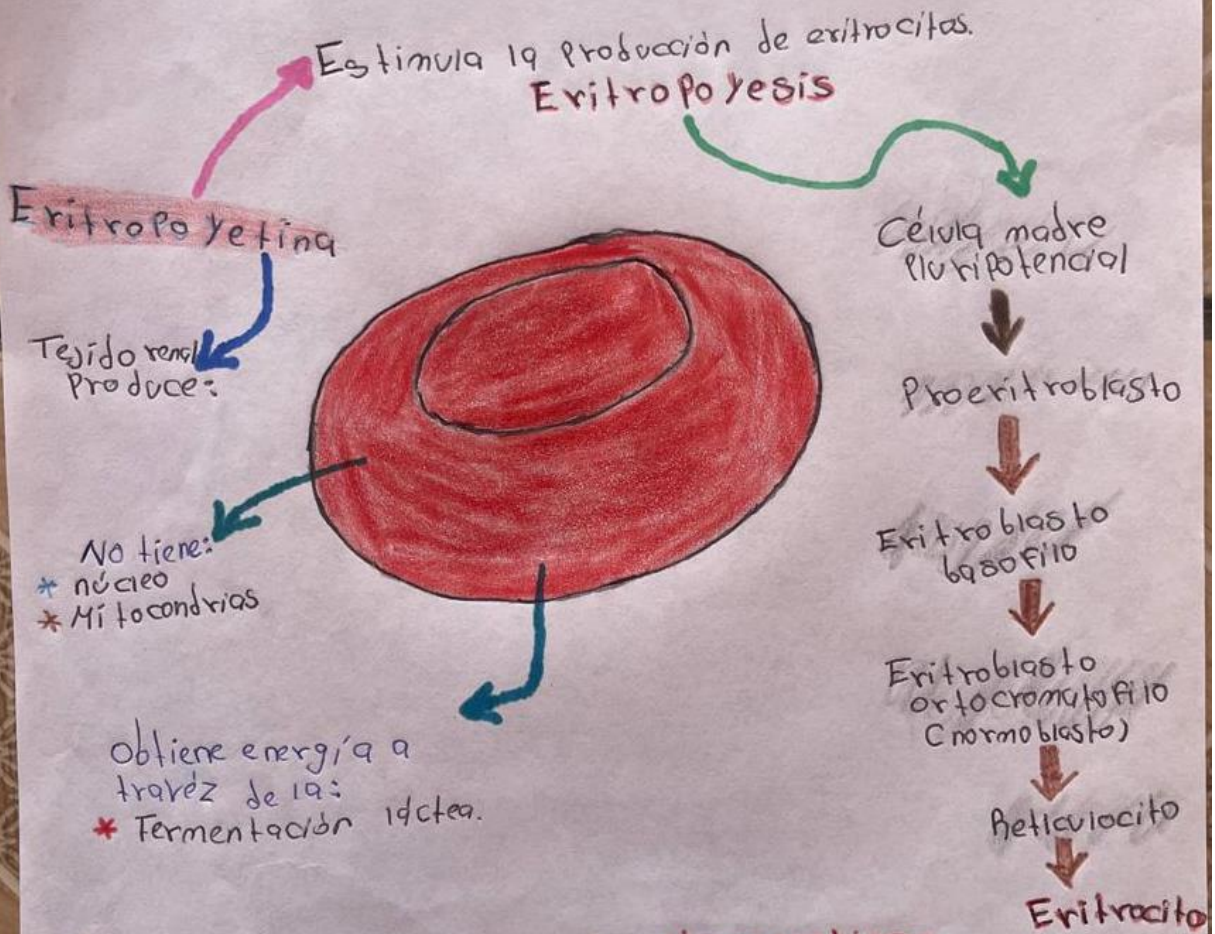 Estimula la Producción de eritrocitos.
Eritropoyesis
Eritropoyetina
Tejido renal
Produce:
No tiene:
* núcleo
* Mitocondrias
Obtiene energía a
travéz de la:
* Fermentación láctea.
Célula madre
Pluripotencial
Proeritroblasto
Eritroblasto
basofilo
Eritroblasto
ortocromatofilo
(normoblasto)
Reticulocito
Eritrocito